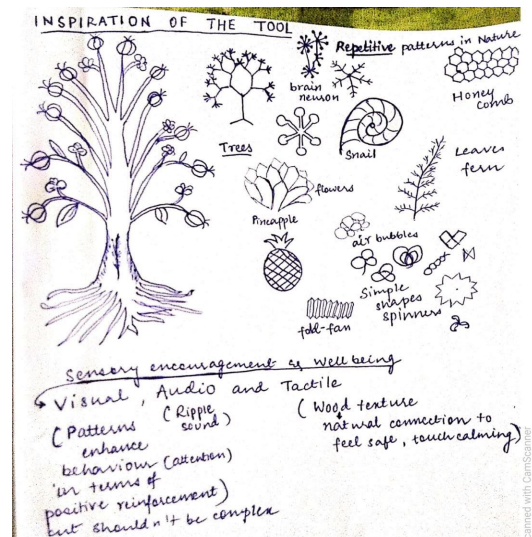 INSPIRATION OF THE TOOL
Repetitive patterns in Nature
brain
neuron
Honey
comb
Trees
Snail
Leaves
fern
flowers
Pineapple
air bubbles
Simple
shapes
spinners
fold-fan
Sensory encouragement & Wellbeing
Visual, Audio and Tactile
(Patterns
enhance
behaviour (attention)
in terms of
positive reinforcement)
but shouldn't be complex
(Ripple
sound)
(Wood texture
natural connection to
feel safe, touch calming)
anned with CamScanner